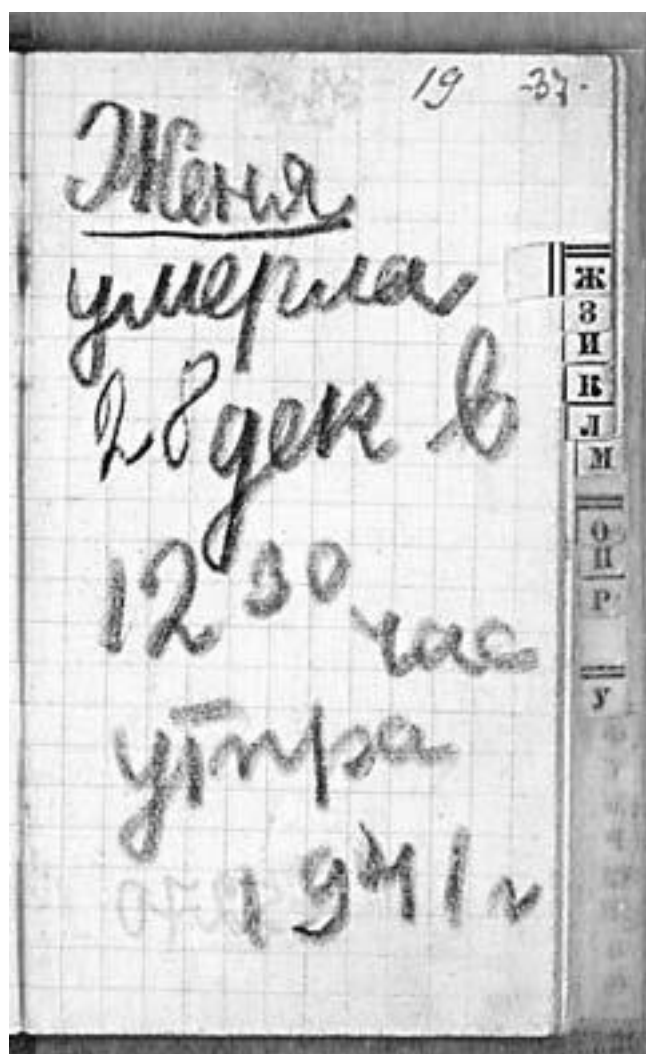 19 -37-
Женя
умерла
28 дек в
12 30 час
утра
1941 г
Ж
З
И
К
Л
М
О
П
Р
У